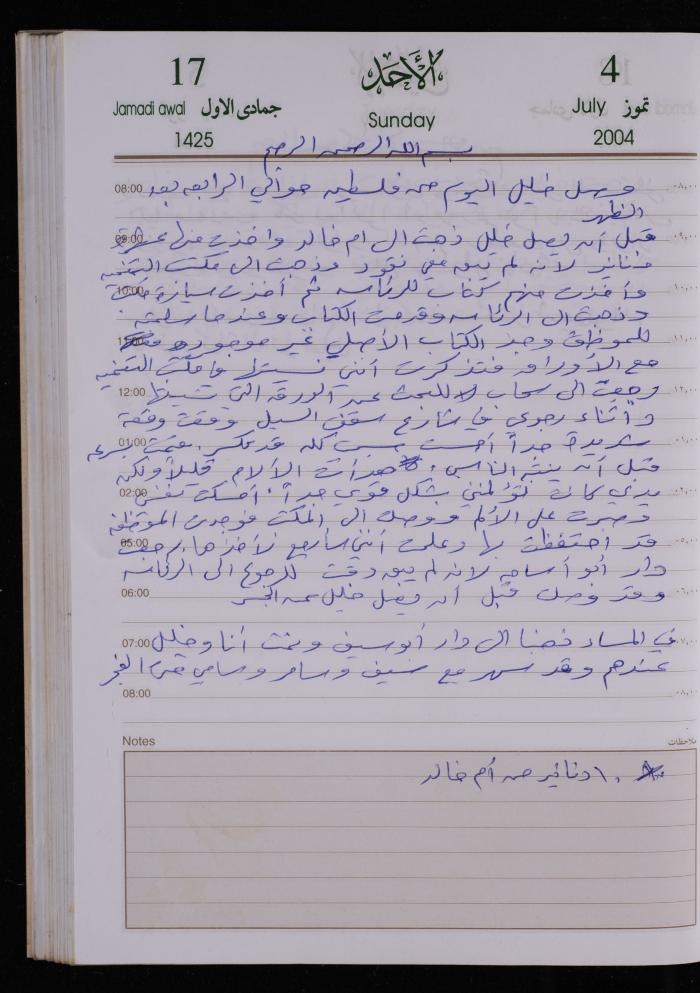 17 الأحد 4
Jamadi awal جمادى الاول Sunday July تموز
1425 2004
بسم الله الرحمن الرحيم
08:00 وصل خليل اليوم من فلسطين حوالي الرابعه بعد
الظهر
09:00 قبل أن يصل خليل ذهبت الى ام خالد واخذت منها عشرة
دنانير لانه لم يبق معي نقود وذهبت الى مكتب
10:00 وأخذت منهم كتاب للرئاسه ثم أخذت سيارة
وذهبت الى الرئاسه وقدمت الكتاب وعندما سلمته
11:00 للموظف وجد الكتاب الأصلي غير موجود
مع الأوراق فتذكرت أنني نسيتها في مكتب
12:00 رجعت الى سحاب للبحث عن الورقة التي نسيتها
وأثناء رجوعي في شارع سقف السيل وقعت وقعة
01:00 شديدة جداً أحسست كله قد تكسر. قمت بسرعه
قبل أن ينتبه الناس. هدأت الألام قليلاً ولكن
02:00 يدي كانت تؤلمني بشكل قوي جداً. أمسكت نفسي
وصبرت على الألم ووصلت الى المكتب فوجدت الموظفه
05:00 قد احتفظت بها وعلمت أنني سأرجع لآخذها. رجعت
دار أبو أسامه لانه لم يبق وقت للرجوع الى الرئاسه
06:00 وقد وصلت قبل أن يصل خليل من الجسر
07:00 في المساء ذهبنا الى دار أبو سيف ونمت أنا وخليل
عندهم وقد سهر مع سيف وسامر وسامي حتى الفجر
08:00
Notes ملاحظات
١٠ دنانير من أم خالد